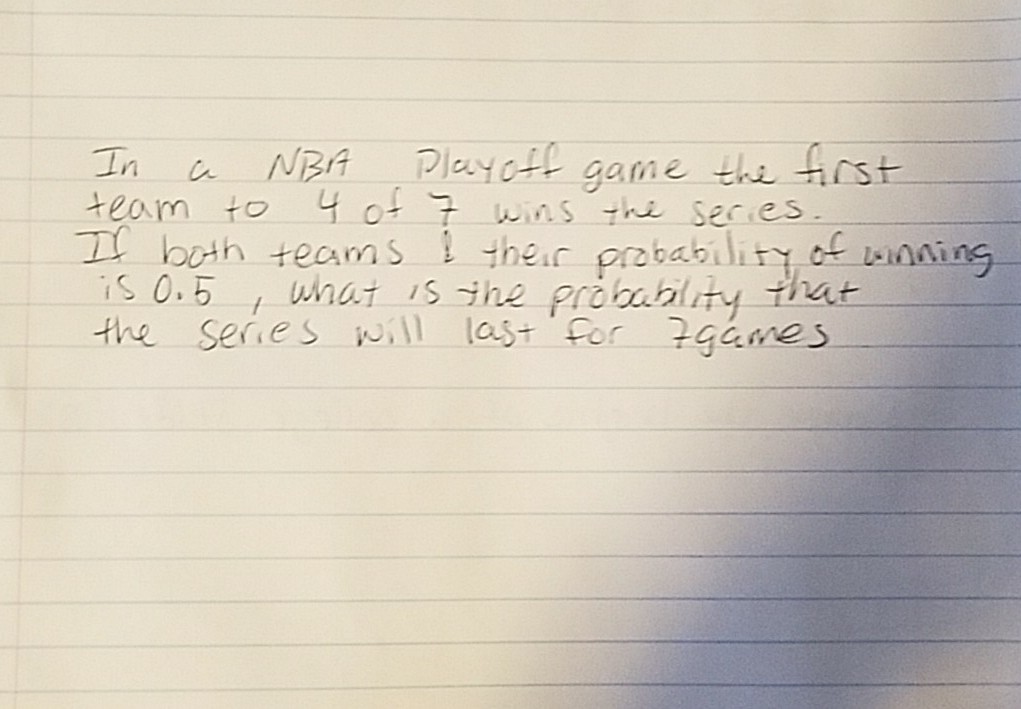 In a NBA Playoff game the first
team to 4 of 7 wins the series.
If both teams & their probability of winning
is 0.5, what is the probability that
the series will last for 7games